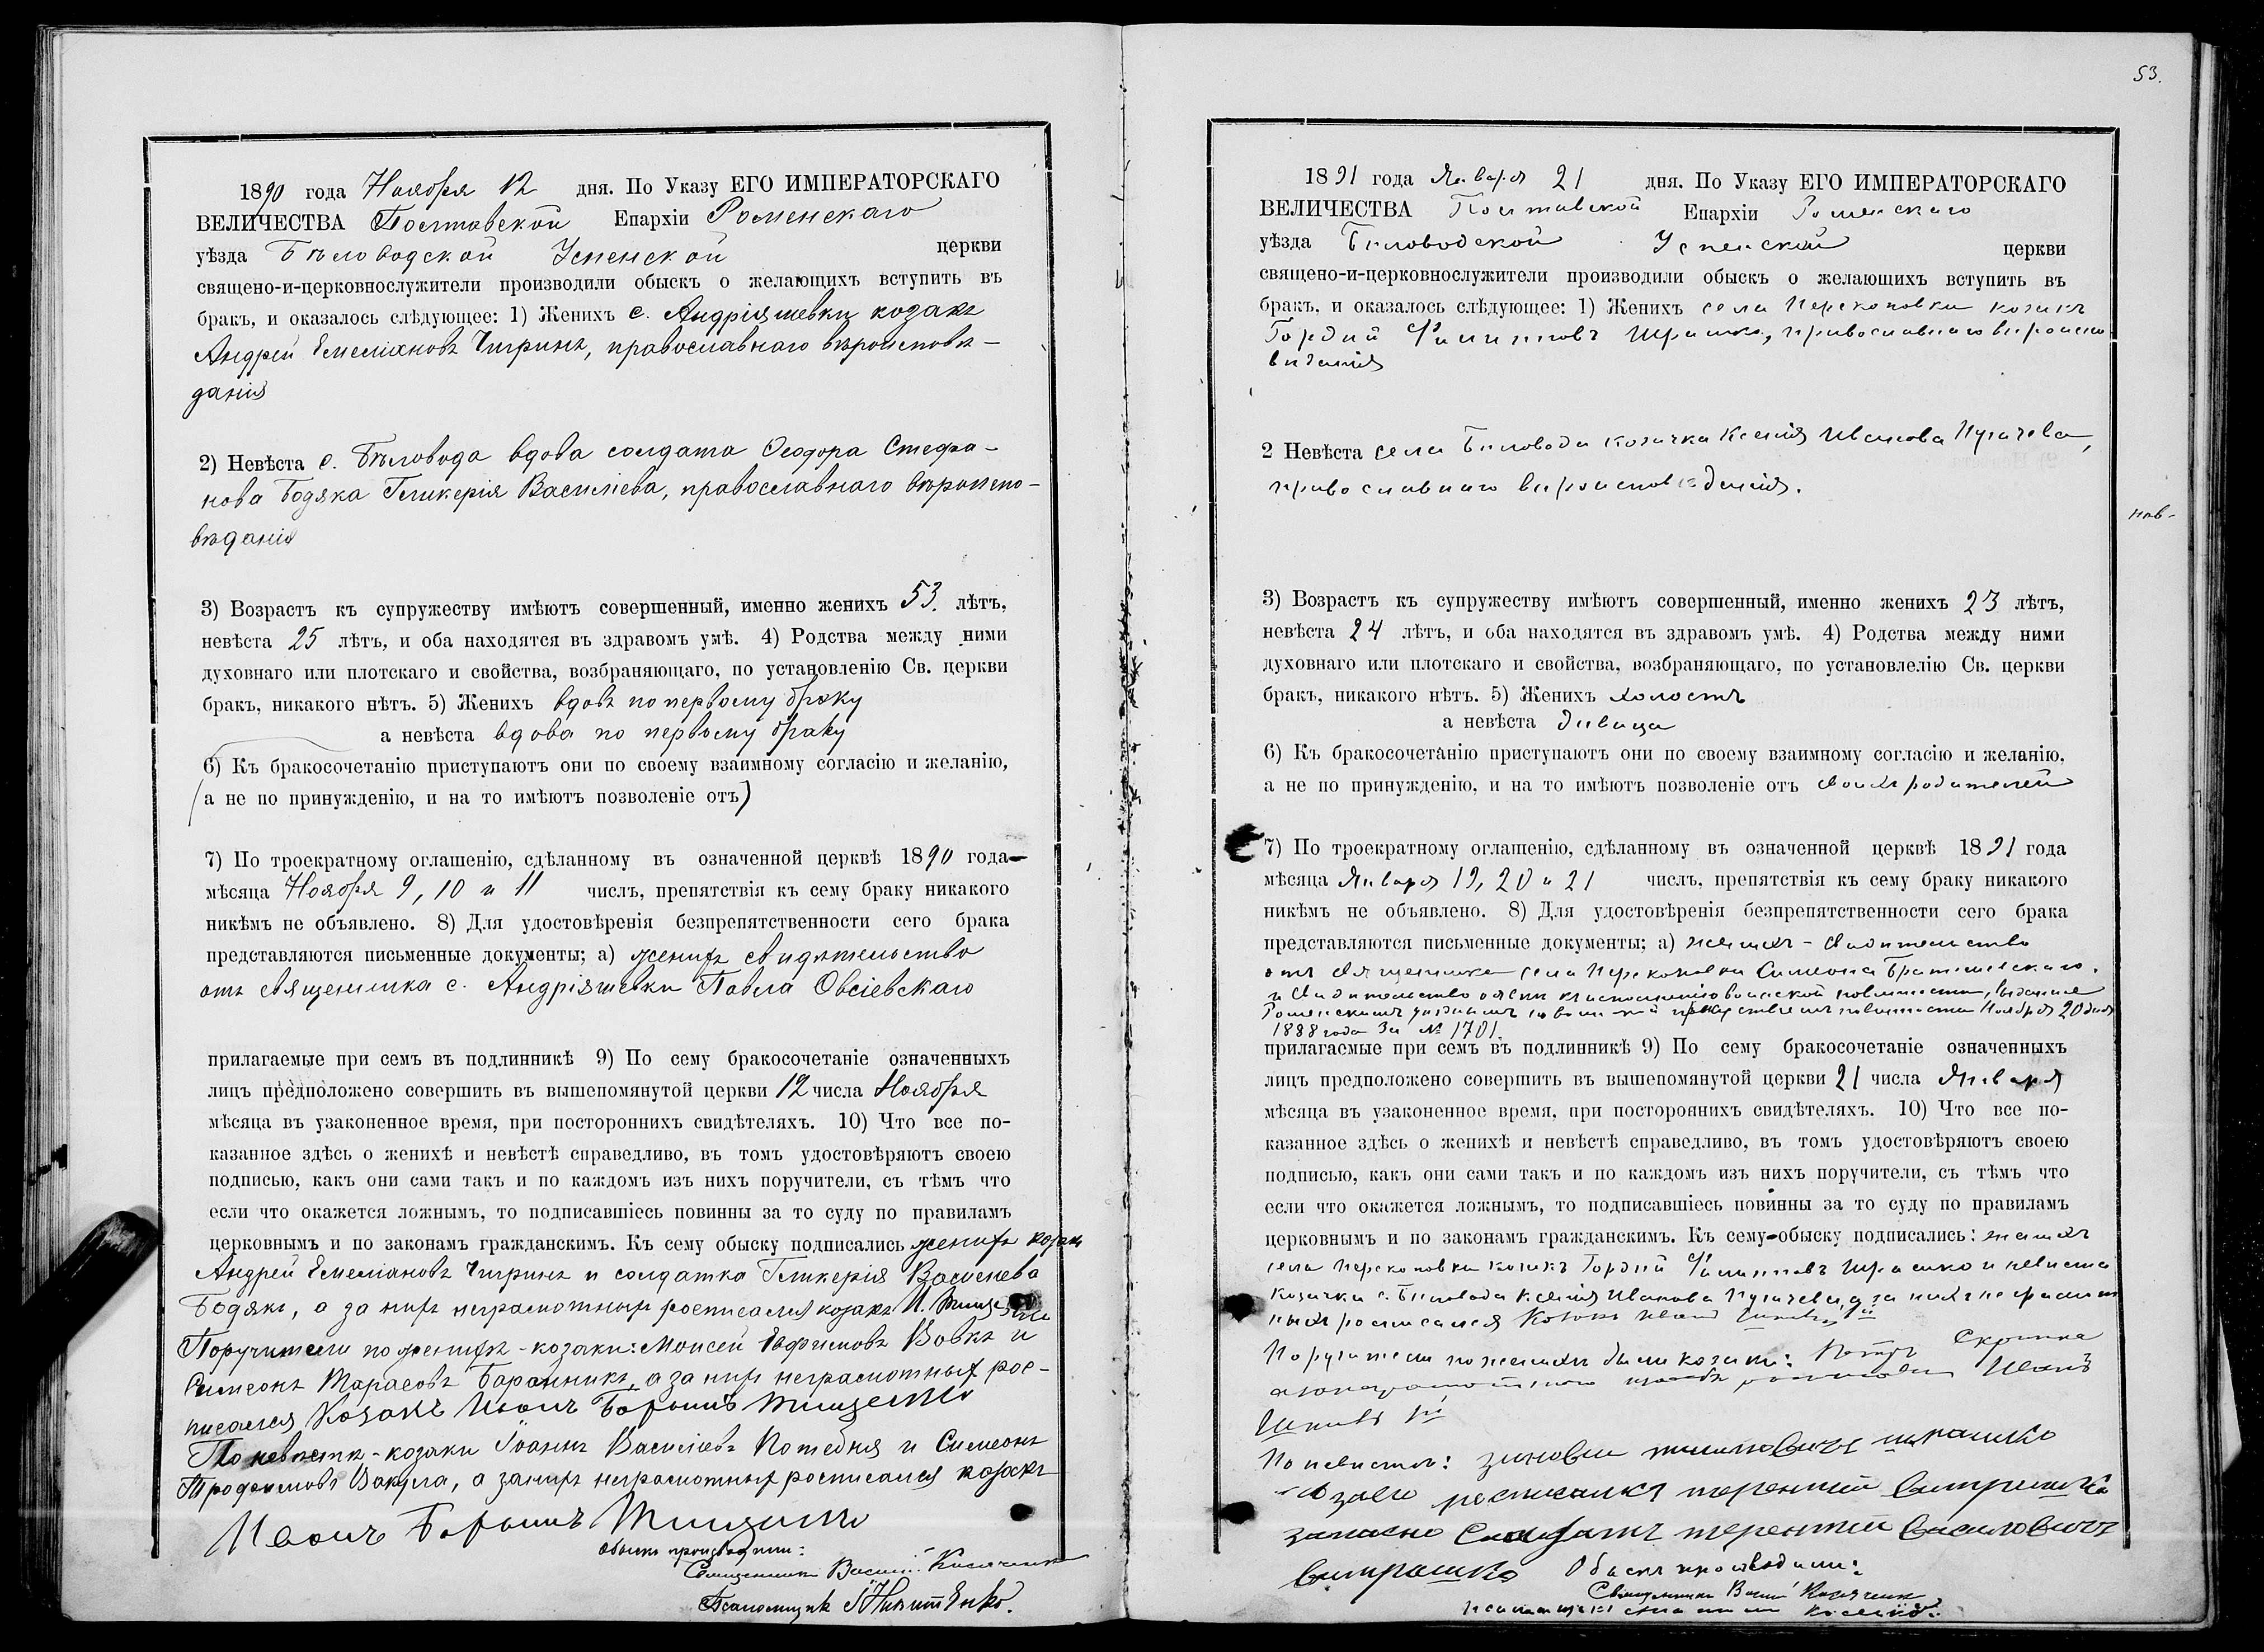 1890 года Ноября 12 дня. По Указу ЕГО ИМПЕРАТОРСКАГО
ВЕЛИЧЕСТВА Полтавской Епархіи Роменскаго
уѣзда Бѣловодской Успенской церкви
священо-и-церковнослужители производили обыскъ о желающихъ вступить въ
бракъ, и оказалось слѣдующее: 1) Женихъ с. Андріяшевки козакъ
Андрей Емеліановъ Чигринъ, православнаго вѣроисповѣ-
данія
2) Невѣста с. Бѣловода вдова солдата Ѳеодора Стефа-
нова Бодяка Гликерія Василіева, православнаго вѣроиспо-
вѣданія
3) Возрастъ къ супружеству имѣютъ совершенный, именно женихъ 53. лѣтъ,
невѣста 25 лѣтъ, и оба находятся въ здравомъ умѣ. 4) Родства между ними
духовнаго или плотскаго и свойства, возбраняющаго, по установленію Св. церкви
бракъ, никакого нѣтъ. 5) Женихъ вдовъ по первому браку
а невѣста вдова по первому браку
6) Къ бракосочетанію приступаютъ они по своему взаимному согласію и желанію,
(а не по принужденію, и на то имѣютъ позволеніе отъ)
7) По троекратному оглашенію, сдѣланному въ означенной церквѣ 1890 года
мѣсяца Ноября 9, 10 и 11 числъ, препятствія къ сему браку никакого
никѣмъ не объявлено. 8) Для удостовѣренія безпрепятственности сего брака
представляются письменные документы; а) женихъ свидѣтельство
отъ священника с. Андріяшевки Павла Овсіевскаго
прилагаемые при семъ въ подлинникѣ 9) По сему бракосочетаніе означенныхъ
лицъ предположено совершить въ вышепомянутой церкви 12 числа Ноября
мѣсяца въ узаконенное время, при постороннихъ свидѣтеляхъ. 10) Что все по-
казанное здѣсь о женихѣ и невѣстѣ справедливо, въ томъ удостовѣряютъ своею
подписью, какъ они сами такъ и по каждомъ изъ нихъ поручители, съ тѣмъ что
если что окажется ложнымъ, то подписавшіесь повинны за то суду по правиламъ
церковнымъ и по законамъ гражданскимъ. Къ сему обыску подписались женихъ козакъ
Андрей Емеліановъ Чигринъ и солдатка Гликерія Василіева
Бодякъ, а за нихъ неграмотныхъ росписался козакъ И. Тищенко
Поручители по женихѣ - козаки: Моисей Евфимовъ Вовкъ и
Симеонъ Тарасовъ Баранникъ, а за нихъ неграмотныхъ рос-
писался Козакъ Иванъ Тищенко
По невѣстѣ - козаки Іоаннъ Василіевъ Потебня и Симеонъ
Трофимовъ Вакула, а за нихъ неграмотныхъ росписался козакъ
Иванъ Тищенко
Обыскъ производили:
Священникъ Василій
Псаломщикъ
53.
1891 года Января 21 дня. По Указу ЕГО ИМПЕРАТОРСКАГО
ВЕЛИЧЕСТВА Полтавской Епархіи Роменскаго
уѣзда Бѣловодской Успенской церкви
священо-и-церковнослужители производили обыскъ о желающихъ вступить въ
бракъ, и оказалось слѣдующее: 1) Женихъ села Перекоповки козакъ
Гордий Филипповъ Ширашко, православнаго вѣроиспо
вѣданія
2 Невѣста села Бѣловода козачка Ксенія Иванова Пугачева,
православнаго вѣроисповѣданія.
нов-
3) Возрастъ къ супружеству имѣютъ совершенный, именно женихъ 23 лѣтъ,
невѣста 24 лѣтъ, и оба находятся въ здравомъ умѣ. 4) Родства между ними
духовнаго или плотскаго и свойства, возбраняющаго, по установлелію Св. церкви
бракъ, никакого нѣтъ. 5) Женихъ холостъ
а невѣста дѣвица
6) Къ бракосочетанію приступаютъ они по своему взаимному согласію и желанію,
а не по принужденію, и на то имѣютъ позволеніе отъ своихъ родителей
7) По троекратному оглашенію, сдѣланному въ означенной церквѣ 1891 года
мѣсяца Января 19, 20 и 21 числъ, препятствія къ сему браку никакого
никѣмъ не объявлено. 8) Для удостовѣренія безпрепятственности сего брака
представляются письменные документы; а) женихъ - свидѣтельство
отъ священника села Перекоповки Симеона
и свидѣтельство о явкѣ къ исполненію воинской повинности, выданное
Роменскимъ уѣзднымъ по воинской повинности Ноября 20 дня
1888 года за № 1701.
прилагаемые при семъ въ подлинникѣ 9) По сему бракосочетаніе означенныхъ
лицъ предположено совершить въ вышепомянутой церкви 21 числа Января
мѣсяца въ узаконенное время, при постороннихъ свидѣтеляхъ. 10) Что все по-
казанное здѣсь о женихѣ и невѣстѣ справедливо, въ томъ удостовѣряютъ своею
подписью, какъ они сами такъ и по каждомъ изъ нихъ поручители, съ тѣмъ что
если что окажется ложнымъ, то подписавшіесь повинны за то суду по правиламъ
церковнымъ и по законамъ гражданскимъ. Къ сему обыску подписались: женихъ
села Перекоповки козакъ Гордий Филипповъ Ширашко и невѣста
козачка с. Бѣловода Ксенія Иванова Пугачева, а за нихъ неграмот
ныхъ росписался Козакъ Иванъ
Поручители по женихѣ были козаки: Петръ Скрипка
Иванъ
По невѣстѣ: зиновий
росписался терентий
терентий василовичъ
Обыскъ производили:
Священникъ